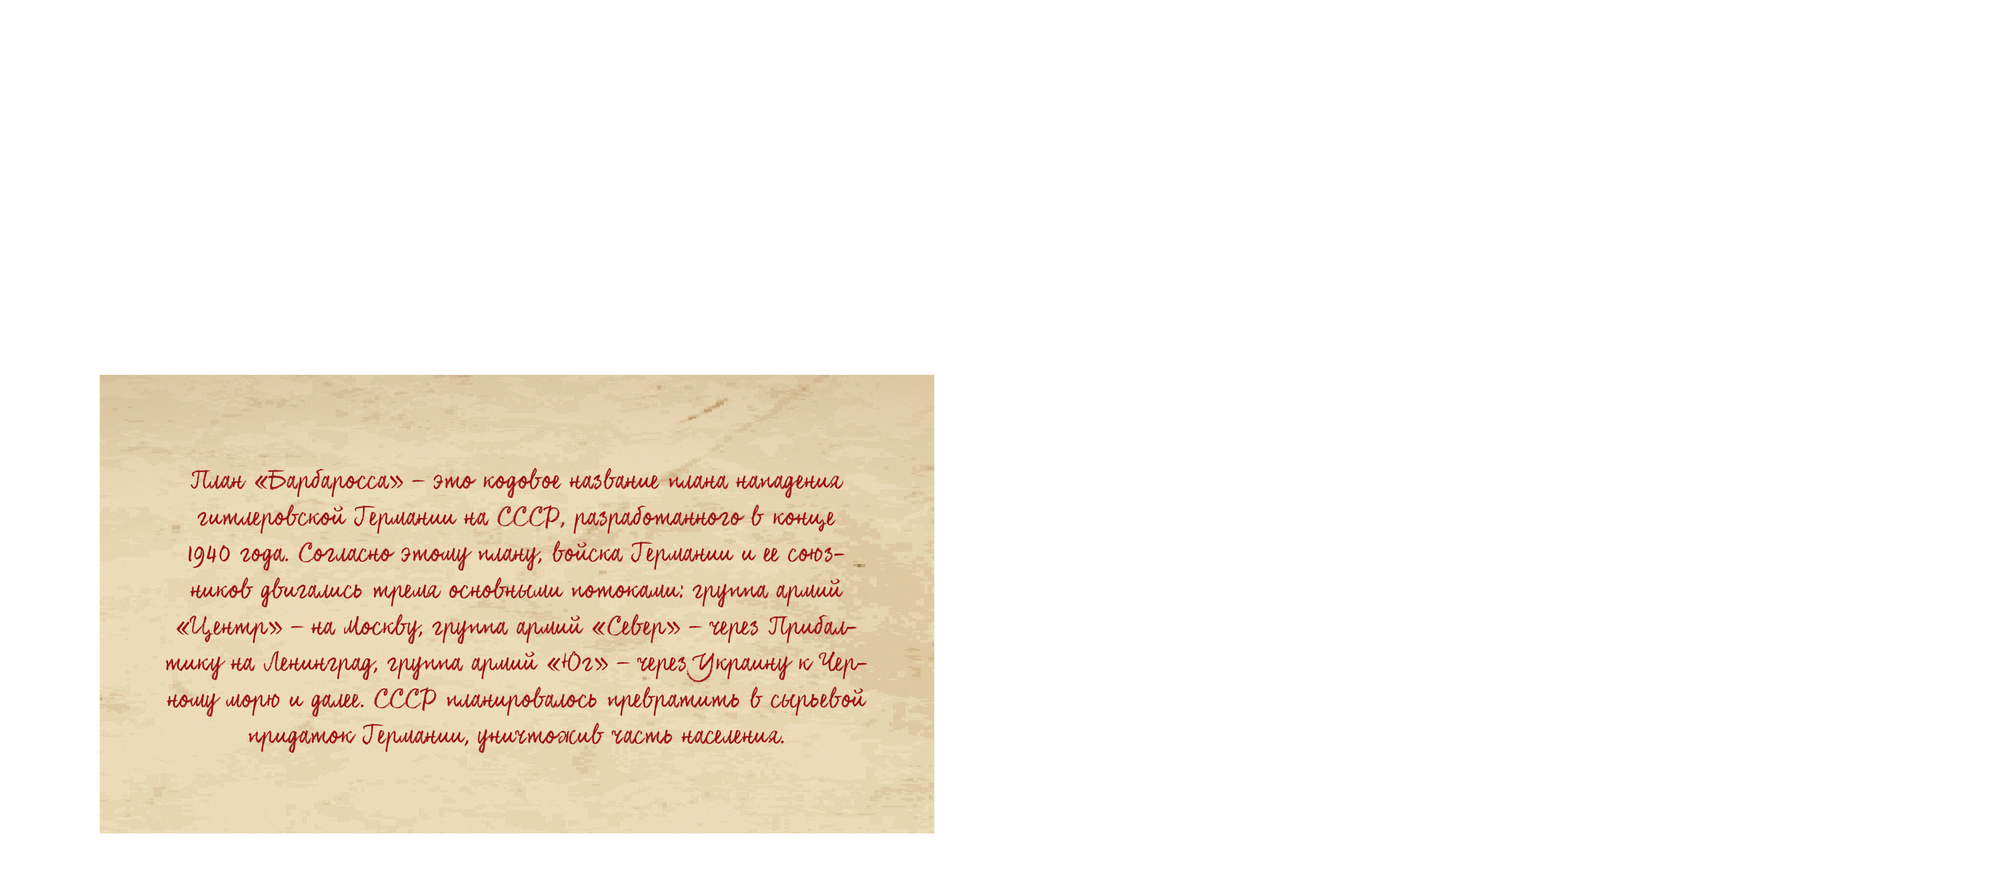 План «Барбаросса» – это кодовое название плана нападения
гитлеровской Германии на СССР, разработанного в конце
1940 года. Согласно этому плану, войска Германии и ее союз-
ников двигались тремя основными потоками: группа армий
«Центр» – на Москву, группа армий «Север» – через Прибал-
тику на Ленинград, группа армий «Юг» – через Украину к Чер-
ному морю и далее. СССР планировалось превратить в сырьевой
придаток Германии, уничтожив часть населения.